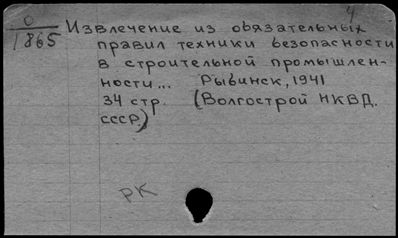 4
О
1865
Извлечение из обязательных
правил техники безопасности
в строительной промышлен-
ности... Рыбинск, 1941
34 стр. (Волгострой НКВД.
СССР.)
РК